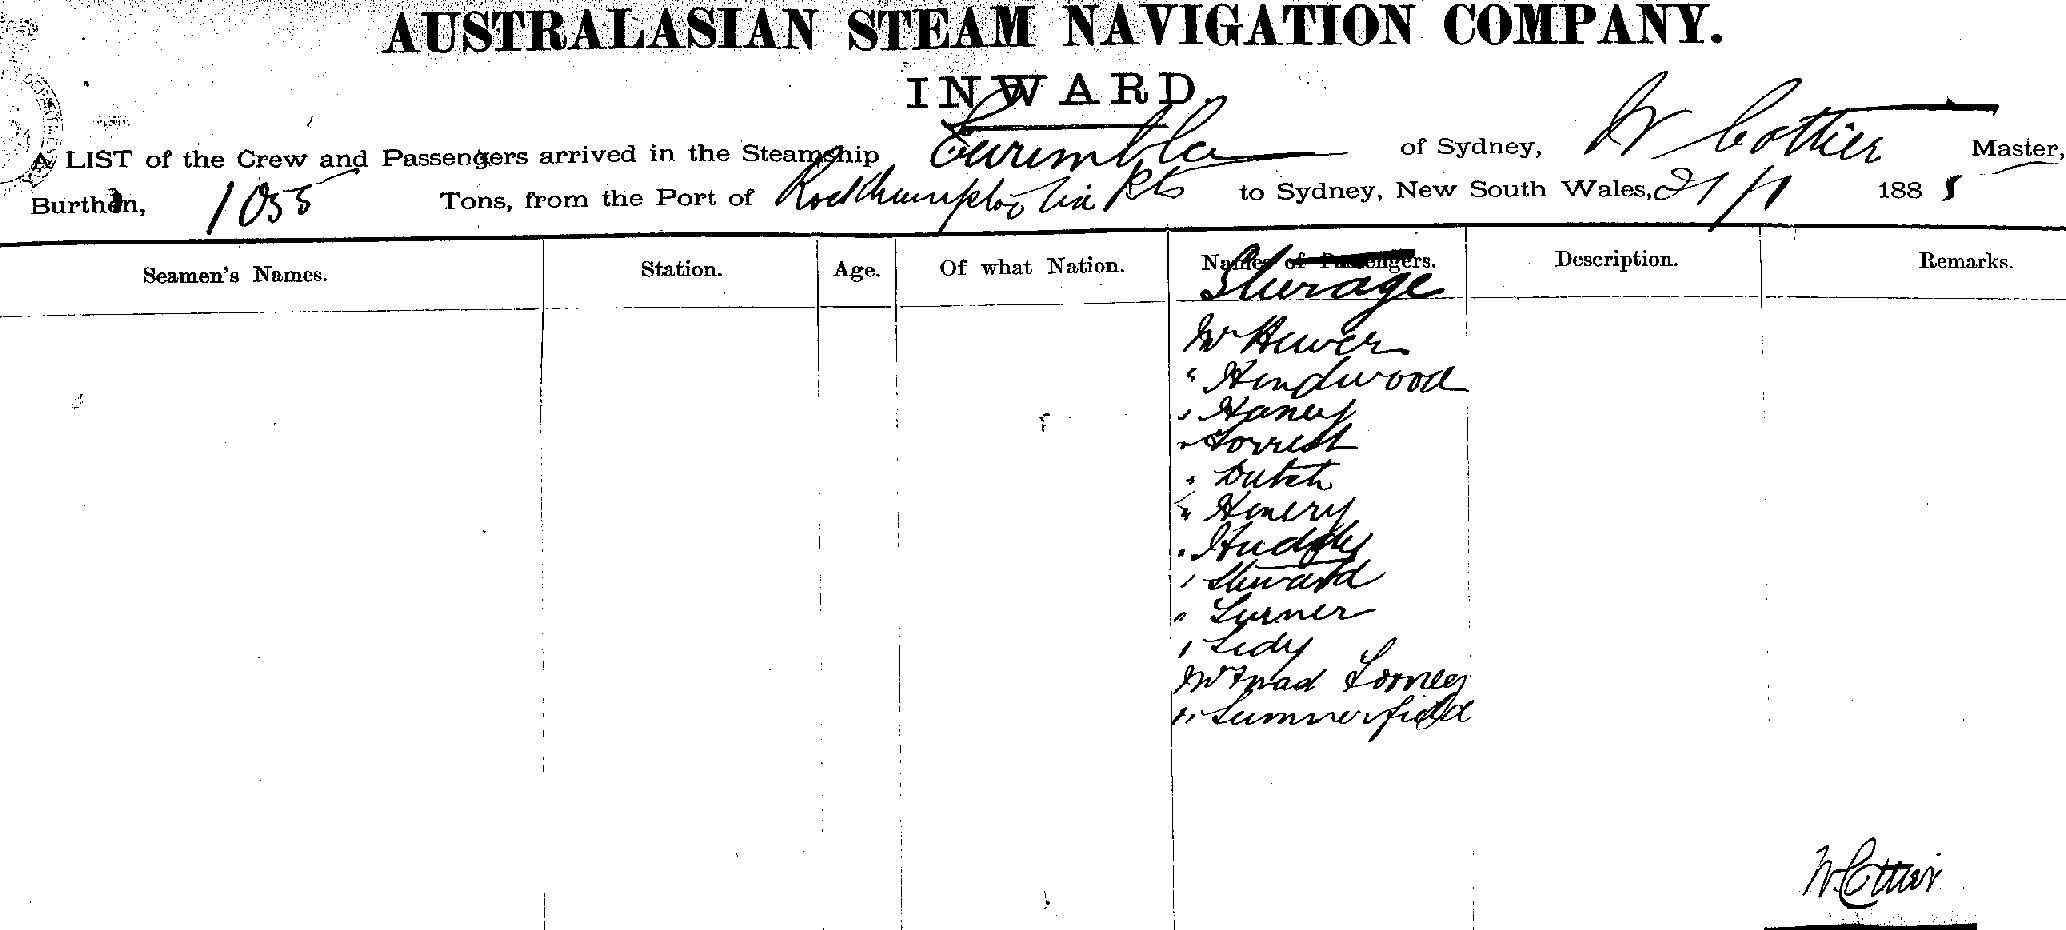 AUSTRALASIAN STEAM NAVIGATION COMPANY.
INWARD.
A LIST of the Crew and Passengers arrived in the Steamship Eurimbla of Sydney, W Cottier Master,
Burthen, 1055 Tons, from the Port of Rockhampton via Pts to Sydney, New South Wales, 21/1 1885
Seamen's Names. Station. Age. Of what Nation. Names of Passengers. Description. Remarks.
Steerage
Mr Hewer
" Hindwood
" Haney
" Forrest
" Dutch
" Henery
" Huddy
" Steward
" Turner
" Lidy
Mr Toomey
" Summerfield
W. Cottier